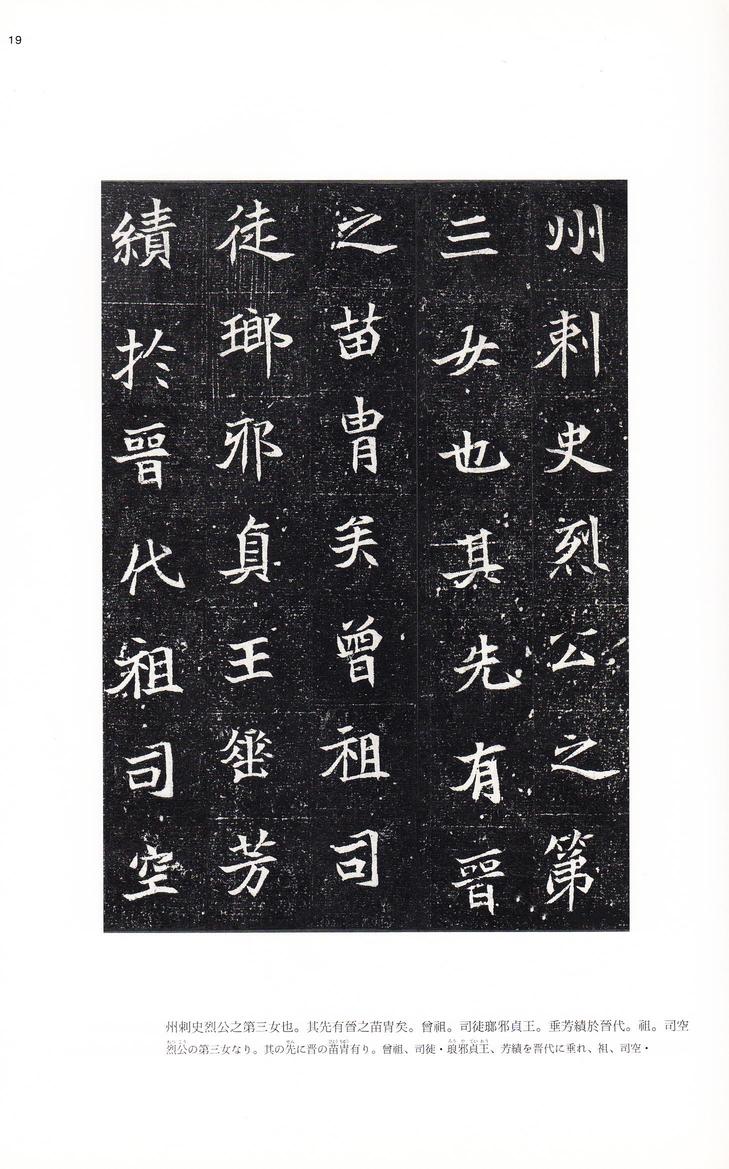 19
州刺史烈公之第
三女也其先有晉
之苗胄矣曾祖司
徒瑯邪貞王垂芳
績於晉代祖司空
州刺史烈公之第三女也。其先有晉之苗冑矣。曾祖。司徒瑯邪貞王。垂芳績於晉代。祖。司空
烈公の第三女なり。其の先に晋の苗冑有り。曾祖、司徒・琅邪貞王、芳績を晋代に垂れ、祖、司空・